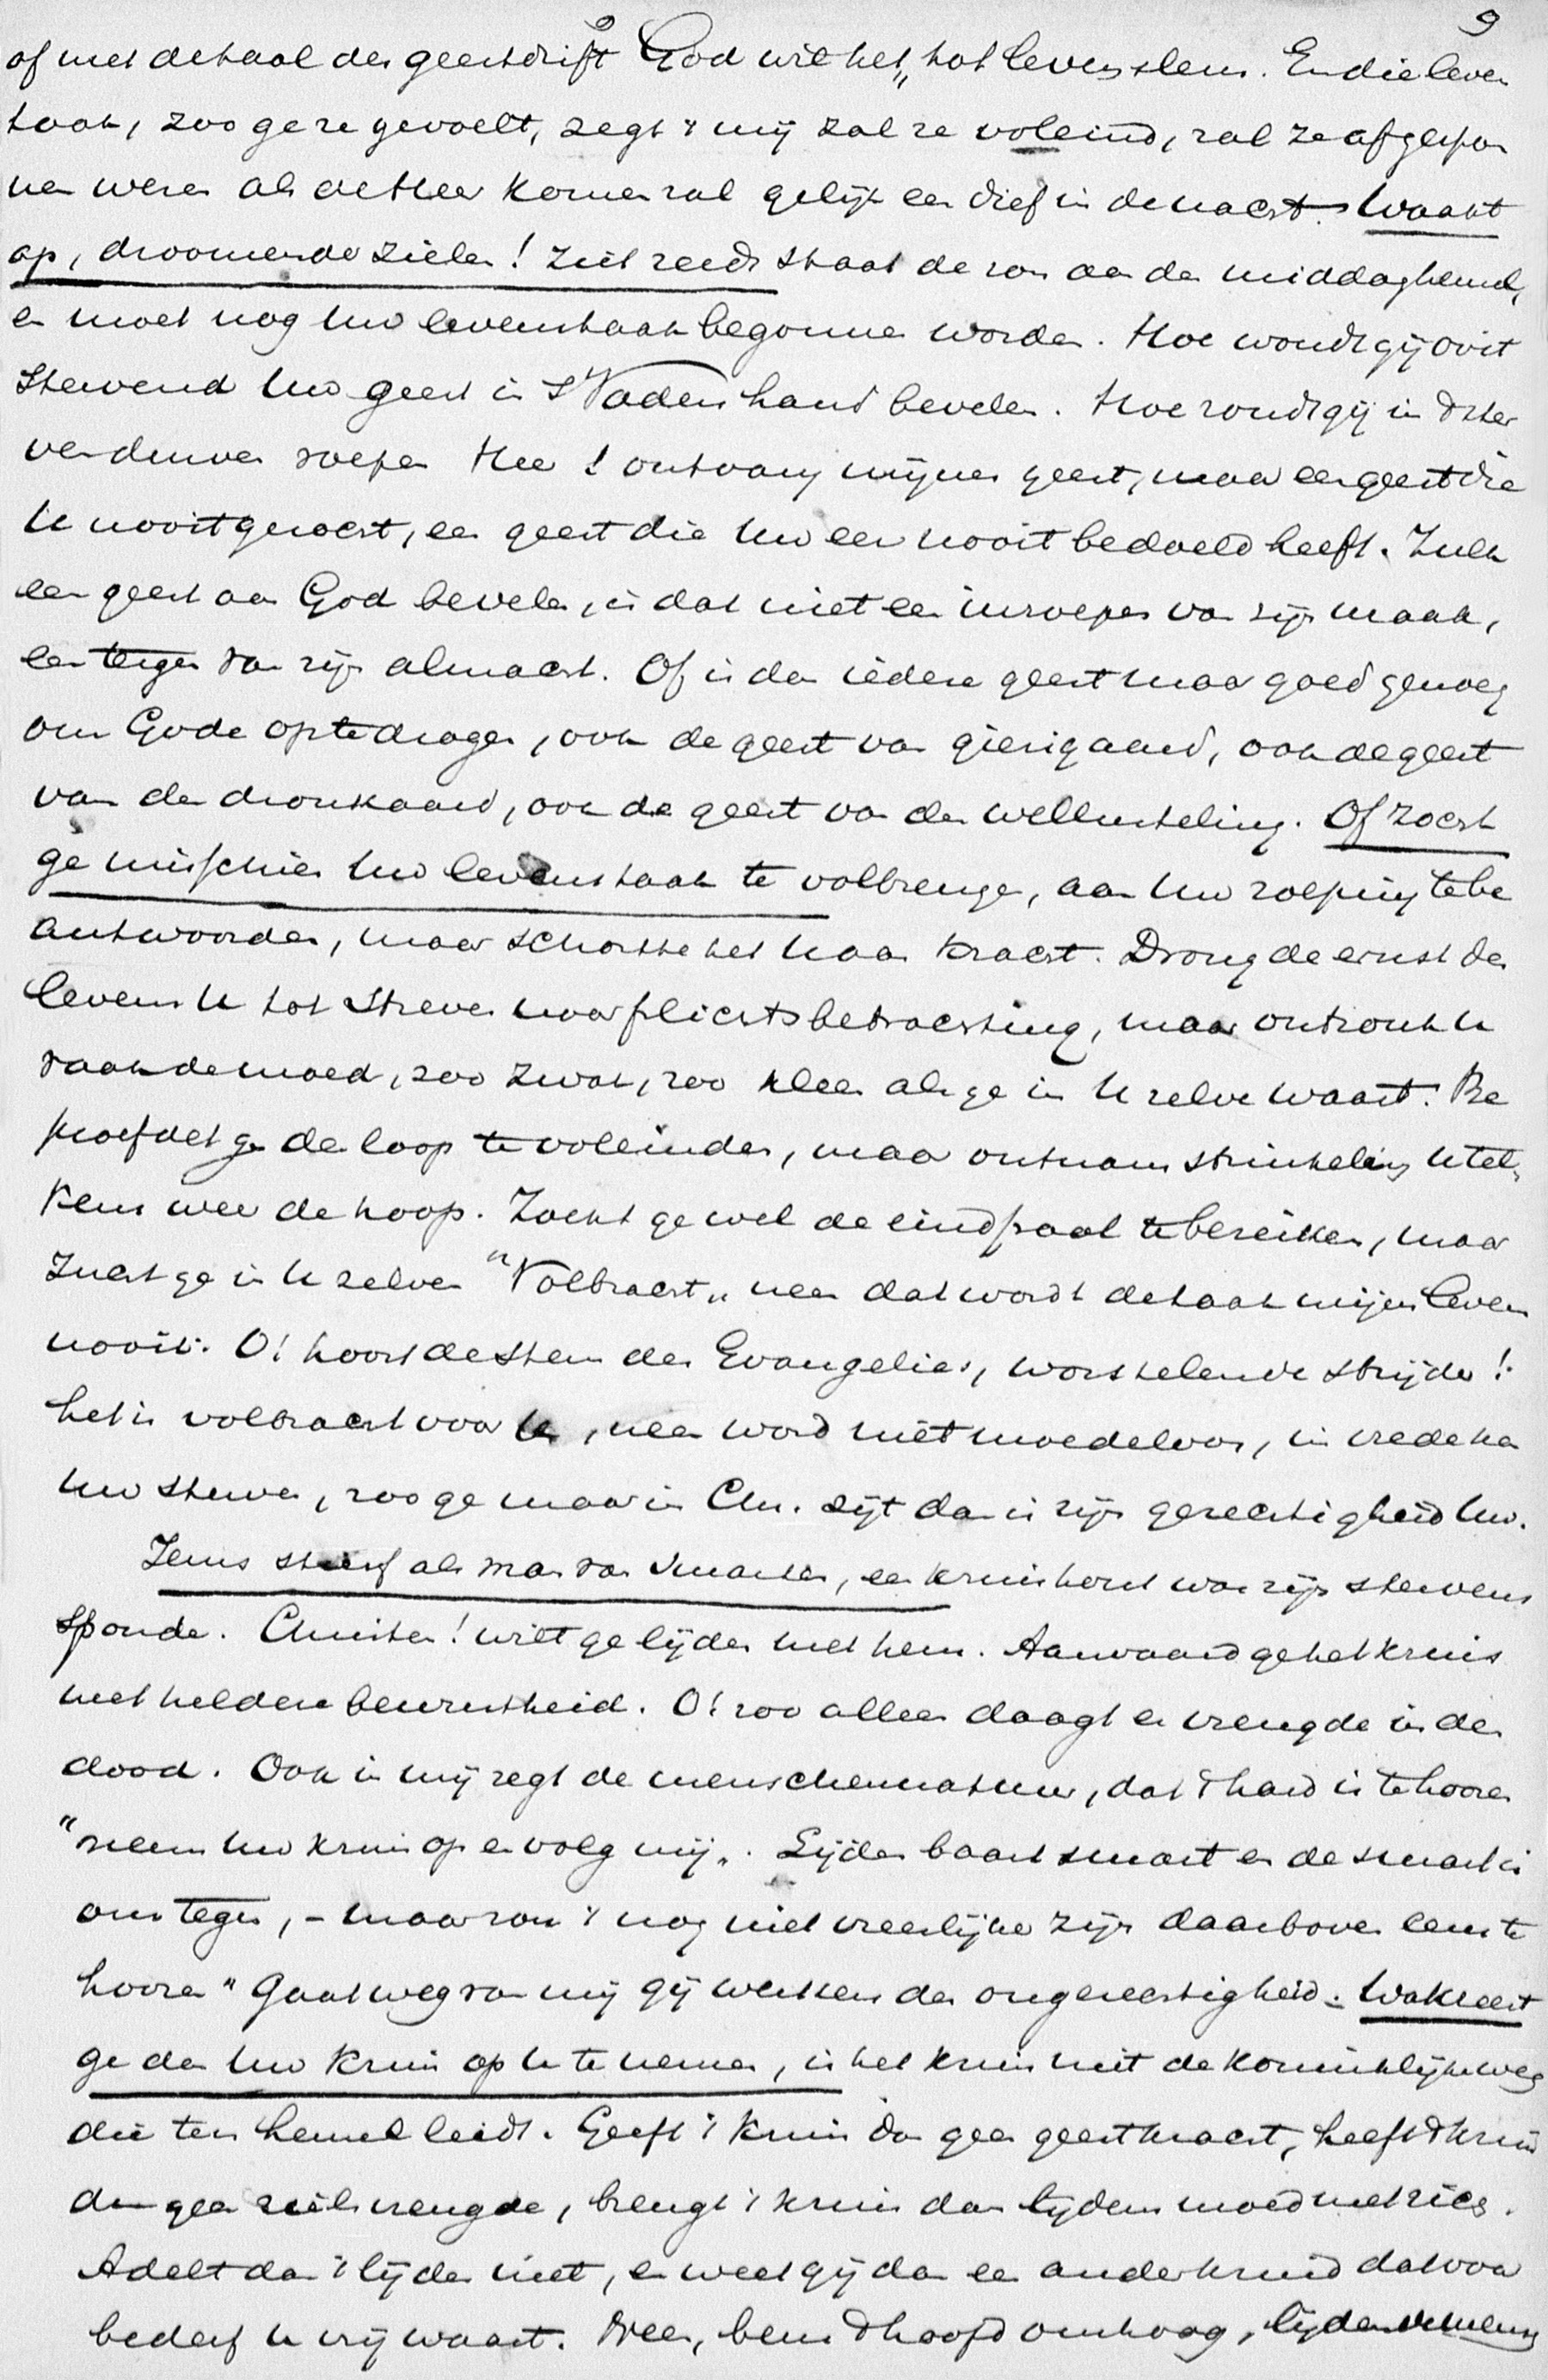 9
of met de taal der geestdrift God wil het „ tot levensleus. En die leven
taak, zoo ge ze gevoelt, zegt 't mij zal ze voleind, zal ze afgespon
nen wezen als de Heer komen zal gelijk een dief in de nacht. Waakt
op, droomende zielen! Ziet reeds staat de zon aan den middaghemel,
en moet nog Uw levenstaak begonnen worden. Hoe zoudt gij ooit
stervend Uw geest in 's Vaders hand bevelen. Hoe zoudt gij in 't ster
vensuur roepen Heer! ontvang mijnen geest, maar een geest die
U nooit gezocht, een geest die Uw eer nooit bedoeld heeft. Zulk
een geest aan God bevelen, is dat niet een inroepen van zijn wraak,
een tergen van zijn almacht. Of is dan iedere geest maar goed genoeg
om Gode op te dragen, ook de geest van gierigaard, ook de geest
van den dronkaard, ook de geest van den wellusteling. Of zocht
ge misschien Uw levenstaak te volbrengen, aan Uw roeping te be
antwoorden, maar schortte het U aan kracht. Drong de ernst des
levens U tot streven naar plichtsbetrachting, maar ontzonk U
vaak de moed, zoo zwak, zoo klein als ge in U zelve waart. Be
proefdet ge den loop te voleinden, maar ontnam struikeling U tel,
kens weer de hoop. Zocht ge wel de eindpaal te bereiken, maar
zucht ge in U zelven "Volbracht„ neen dat wordt de taak mijns levens
nooit. O! hoort de stem des Evangelies, worstelende strijder!
het is volbracht voor U, neen word niet moedeloos, in vrede kan
Uw sterven, zoo ge maar in Chr. zijt dan is zijn gerechtigheid Uw.
Jezus stierf als man van smarten, een kruishout was zijn stervens
sponde. Christen! wilt ge lijden met hem. Aanvaard ge het kruis
met heldere bewustheid. O! zoo alleen daagt er vreugde in den
dood. Ook in mij zegt de menschennatuur, dat 't hard is te hooren
"neem Uw kruis op en volg mij„. Lijden baart smart en de smart is
ons tegen, - maar zou 't nog niet vreeslijker zijn daarboven eens te
hooren "Gaat weg van mij gij werkers der ongerechtigheid. Wat vreest
ge dan Uw kruis op U te nemen, is het kruis niet de koninklijke weg
die ten hemel leidt. Geeft 't kruis dan geen geestkracht, heeft 't kruis
dan geen zielsvreugde, brengt 't kruis dan lijdensmoed met zich.
Adelt dan 't lijden niet, en weet gij dan een ander kruid dat voor
bederf U vrijwaart. Neen, beur 't hoofd omhoog, lijdende mensch